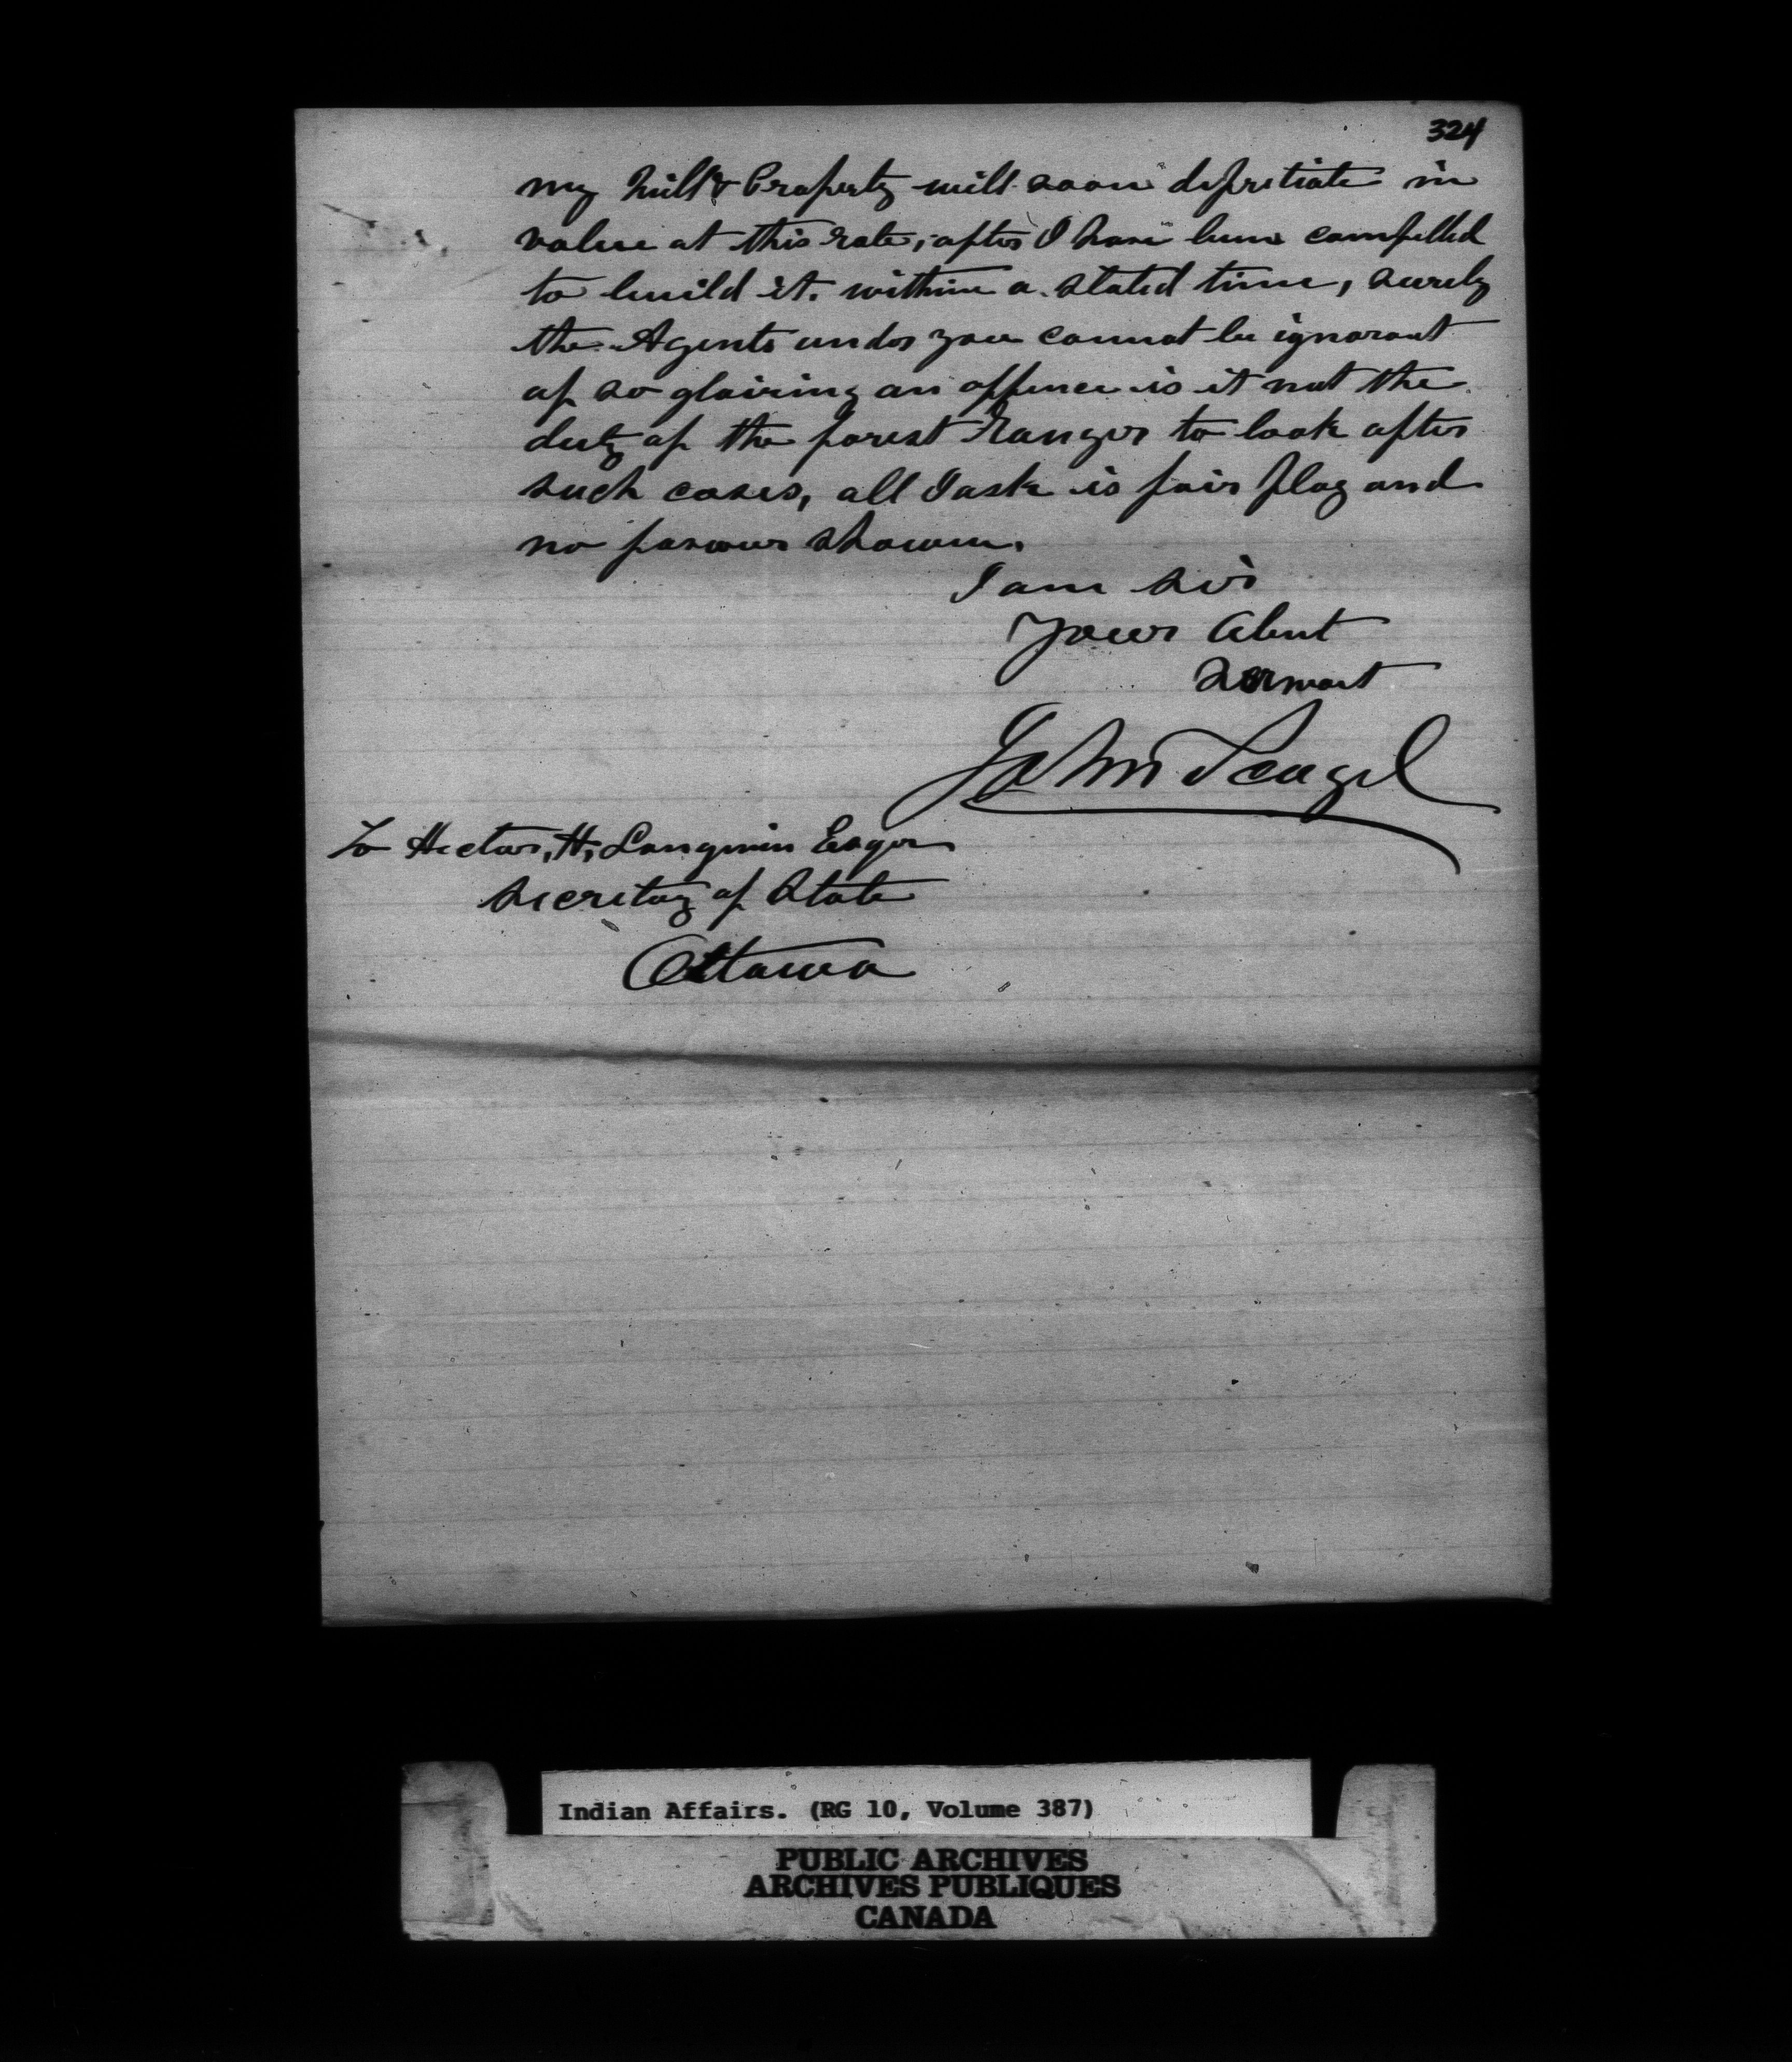 324
my Mill & Property will soon depritiate in
value at this rate, after I have been compelled
to build it. within a stated time, surely
the Agents under you cannot be ignorant
of so glairing an offence is it not the
duty of the forest Ranger to look after
such cases, all I ask is fair play and
no favours shown.
I am Sir
Yours Obnt
Servant
John
To Hector, H, Langevin Esqr
Secritay of State
Ottawa
Indian Affairs. (RG 10, Volume 387)
PUBLIC ARCHIVES
ARCHIVES PUBLIQUES
CANADA